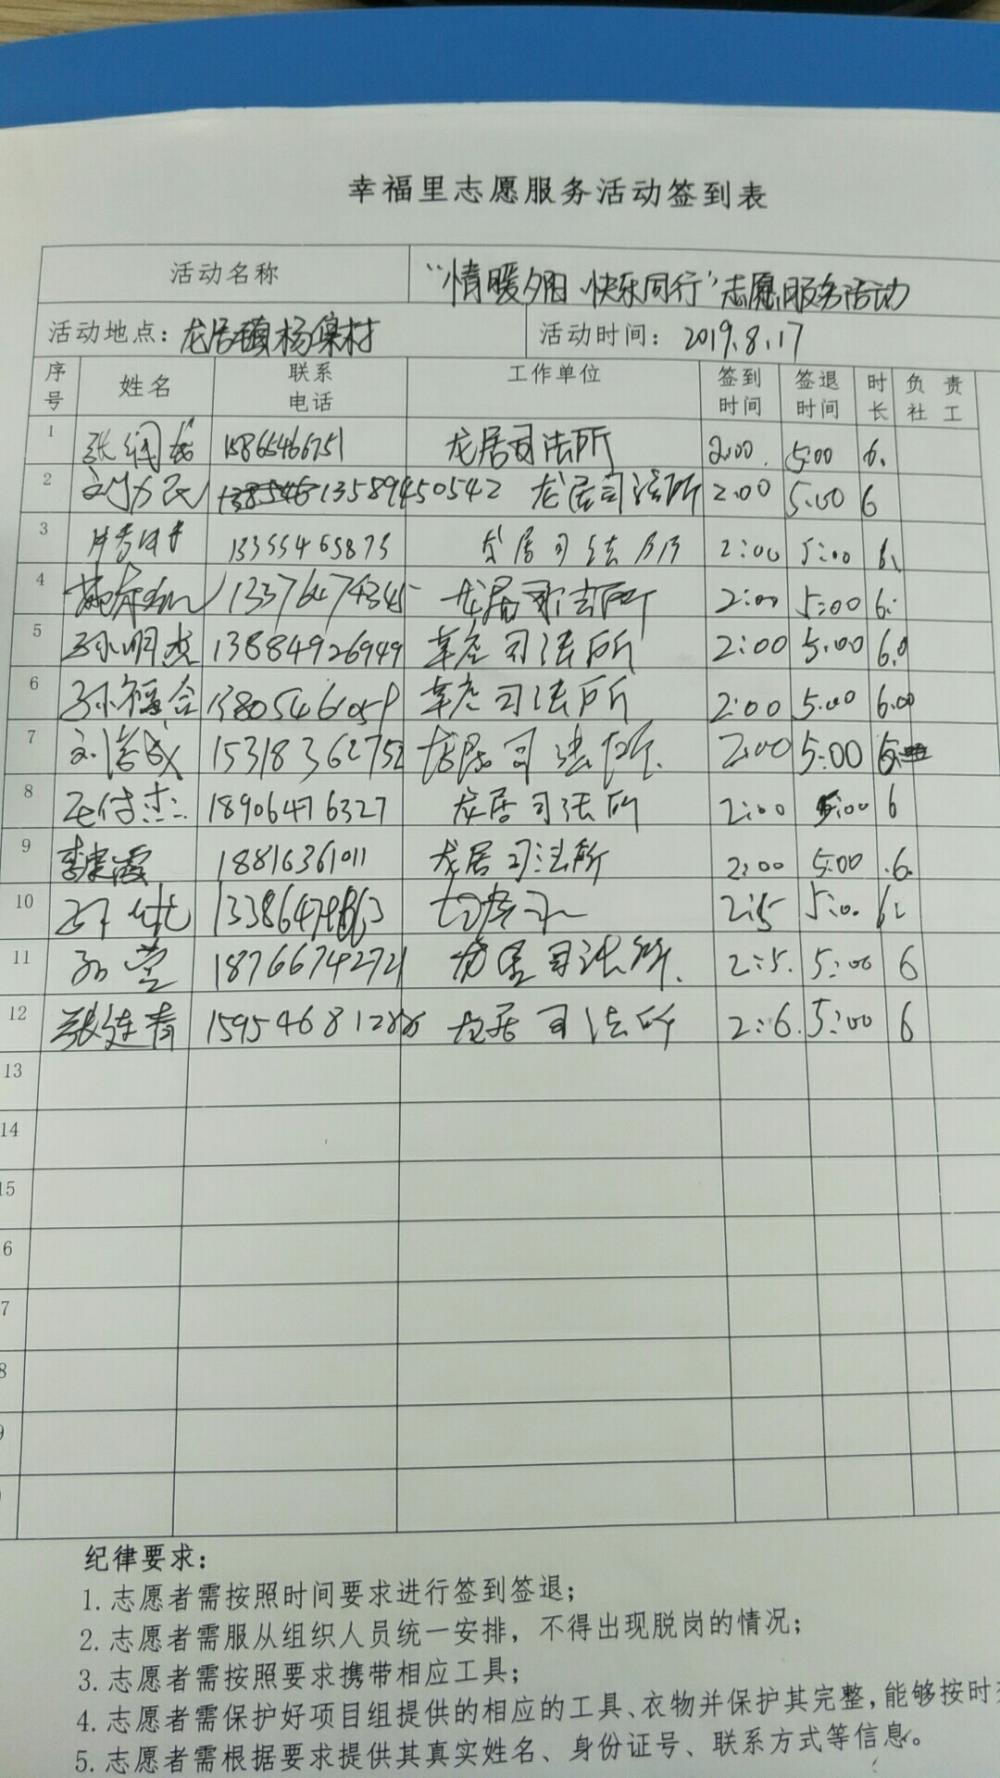 幸福里志愿服务活动签到表
活动名称 "情暖夕阳 快乐同行"志愿服务活动
活动地点：龙居镇杨集村 活动时间： 2019.8.17
序号 姓名 联系电话 工作单位 签到时间 签退时间 时长 负责社工
1 张 15865466751 龙居司法所 2:00. 5:00 6.
2 13589450542 龙居司法所 2:00 5:00 6
3 13355465875 龙居司法所 2:00 5:00 6.
4 13376474345 龙居司法所 2:00 5:00 6.
5 孙明杰 13884926949 辛店司法所 2:00 5:00 6.0
6 孙福合 13805461059 辛店司法所 2:00 5:00 6.00
7 刘 15318362752 龙居司法所. 2:00 5:00 6
8 王付杰 18906476327 龙居司法所 2:00 5:00 6
9 李建霞 18816361011 龙居司法所 2:00 5:00 .6.
10 2:5 5:0. 6
11 孙莹 18766742721 龙居司法所. 2:5. 5:00 6
12 张连青 15954681286 龙居司法所 2:6. 5:00 6
13
14
15
6
7
8
9
纪律要求：
1.志愿者需按照时间要求进行签到签退；
2.志愿者需服从组织人员统一安排，不得出现脱岗的情况；
3.志愿者需按照要求携带相应工具；
4.志愿者需保护好项目组提供的相应的工具、衣物并保护其完整，能够按时
5.志愿者需根据要求提供其真实姓名、身份证号、联系方式等信息。